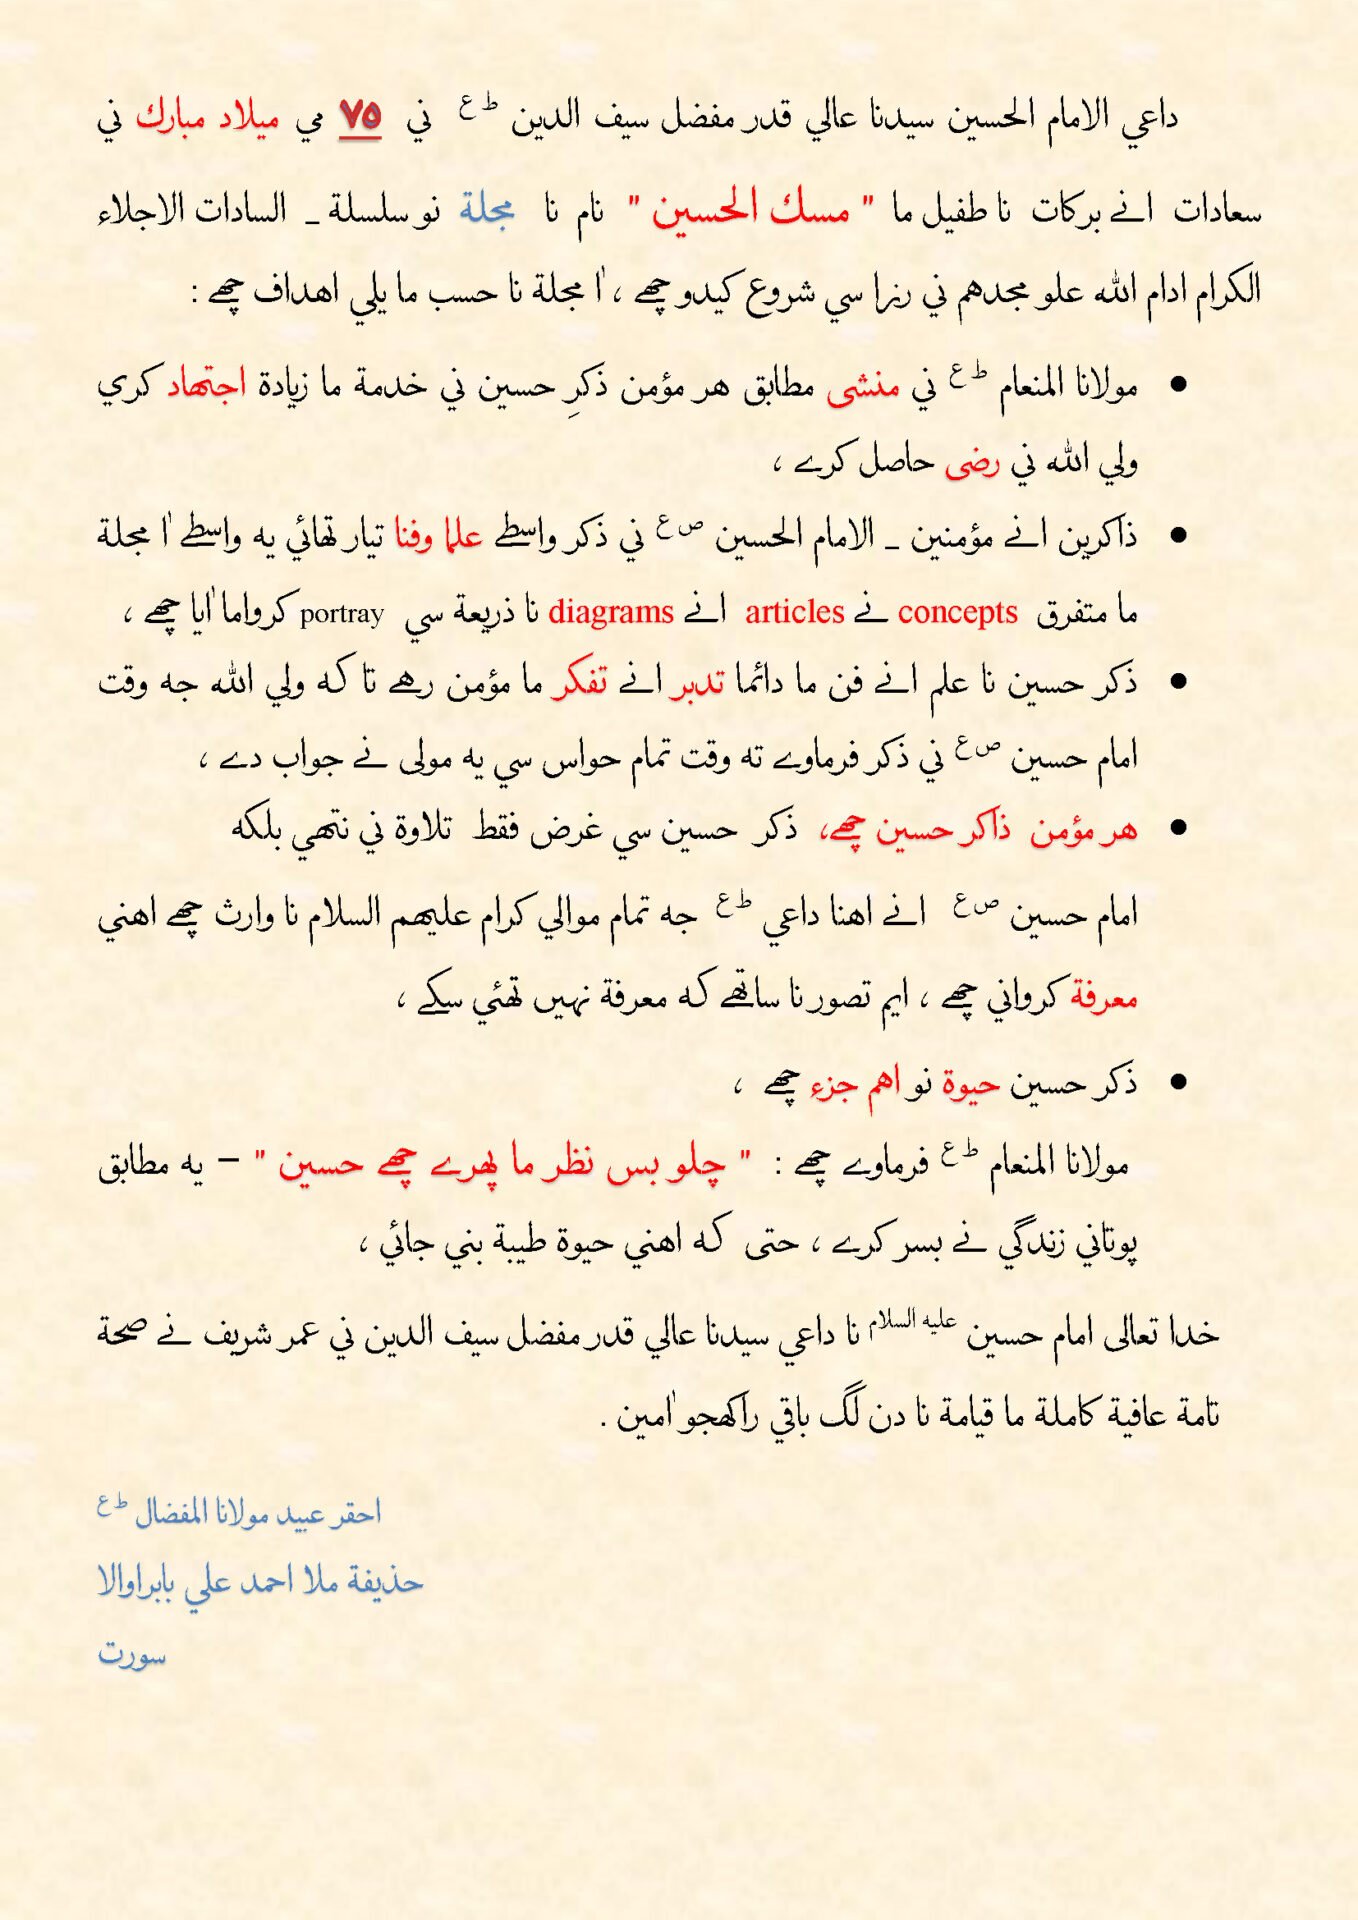 داعي الامام الحسين سيدنا عالي قدر مفضل سيف الدين ط ع ني ٧٥ مي ميلاد مبارك ني
سعادات انے بركات نا طفيل ما " مسك الحسين " نام نا مجلة نو سلسلة ـ السادات الاجلاء
الكرام ادام الله علو مجدهم ني رزا سي شروع كيدو چھے ، اٰ مجلة نا حسب ما يلي اهداف چھے :
• مولانا المنعام ط ع ني منشى مطابق هر مؤمن ذكرِ حسين ني خدمة ما زيادة اجتهاد كري
ولي الله ني رضى حاصل كرے ،
• ذاكرين انے مؤمنين ـ الامام الحسين ص ع ني ذكر واسطے علما وفنا تيار تھائي يه واسطے اٰ مجلة
ما متفرق concepts نے articles انے diagrams نا ذريعة سي portray كرواما اٰيا چھے ،
• ذكر حسين نا علم انے فن ما دائما تدبر انے تفكر ما مؤمن رهے تا كه ولي الله جه وقت
امام حسين ص ع ني ذكر فرماوے ته وقت تمام حواس سي يه مولى نے جواب دے ،
• هر مؤمن ذاكر حسين چھے، ذكر حسين سي غرض فقط تلاوة ني نتھي بلكه
امام حسين ص ع انے اهنا داعي ط ع جه تمام موالي كرام عليهم السلام نا وارث چھے اهني
معرفة كرواني چھے ، ايم تصور نا ساتھے كه معرفة نہيں تھئي سكے ،
• ذكر حسين حيوة نو اهم جزء چھے ،
مولانا المنعام ط ع فرماوے چھے : " چلو بس نظر ما پھرے چھے حسين " – يه مطابق
پوتاني زندگي نے بسر كرے ، حتى كه اهني حيوة طيبة بني جائي ،
خدا تعالى امام حسين عليه السلام نا داعي سيدنا عالي قدر مفضل سيف الدين ني عمر شريف نے صحة
تامة عافية كاملة ما قيامة نا دن لگ باقي راكھجو اٰمين .
احقر عبيد مولانا المفضال ط ع
حذيفة ملا احمد علي بابراوالا
سورت